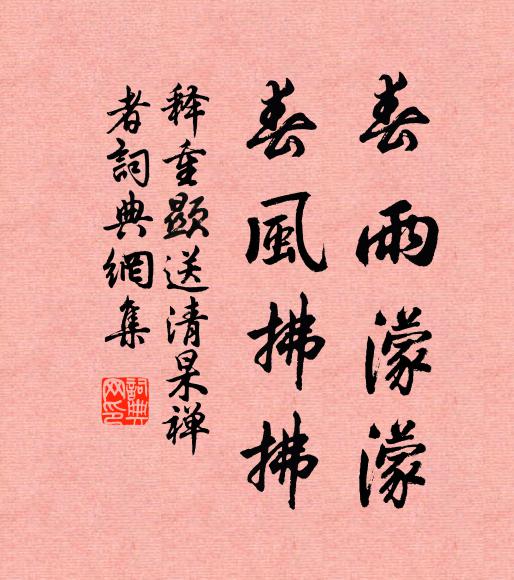 春雨濛濛
春風拂拂
释重顯送清杲禅
者詞典網集
詞典
网印